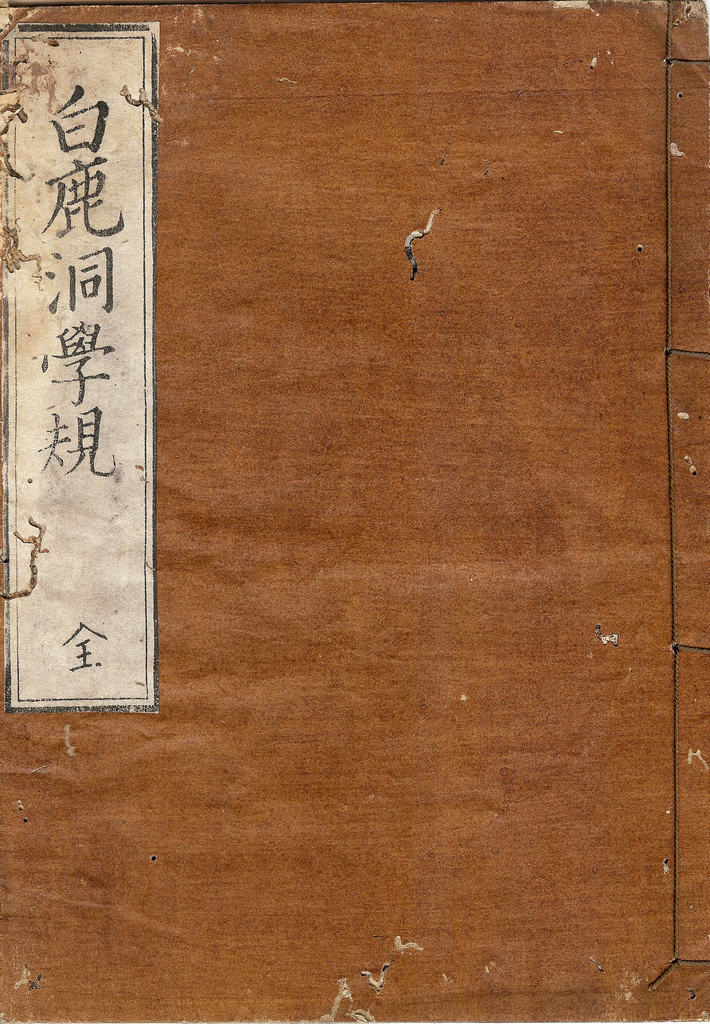 白鹿洞學規
全